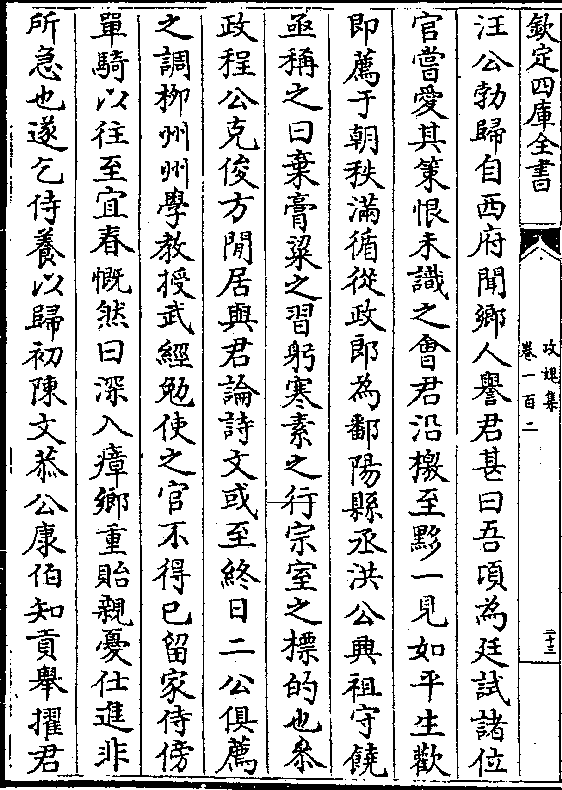 欽定四庫全書
攻媿集
卷一百二
二十三
汪公勃歸自西府聞鄉人譽君甚曰吾頃為廷試諸位
官嘗愛其策恨未識之會君沿檄至黟一見如平生歡
即薦于朝秩滿循從政郎為鄱陽縣丞洪公興祖守饒
亟稱之曰棄膏粱之習躬寒素之行宗室之標的也叅
政程公克俊方閒居與君論詩文或至終日二公俱薦
之調柳州州學教授武經勉使之官不得已留家侍傍
單騎以往至宜春慨然曰深入瘴鄉重貽親憂仕進非
所急也遂乞侍養以歸初陳文恭公康伯知貢舉擢君